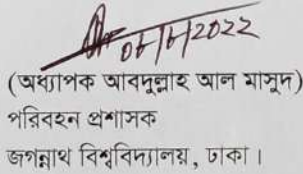 06/6/2022
(অধ্যাপক আবদুল্লাহ আল মাসুদ)
পরিবহন প্রশাসক
জগন্নাথ বিশ্ববিদ্যালয়, ঢাকা।